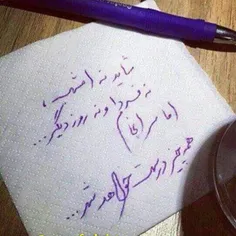 شاید نه امشب،
نه فردا و نه روز دیگر...
اما سرانجام
همه چیز درست خواهد شد...